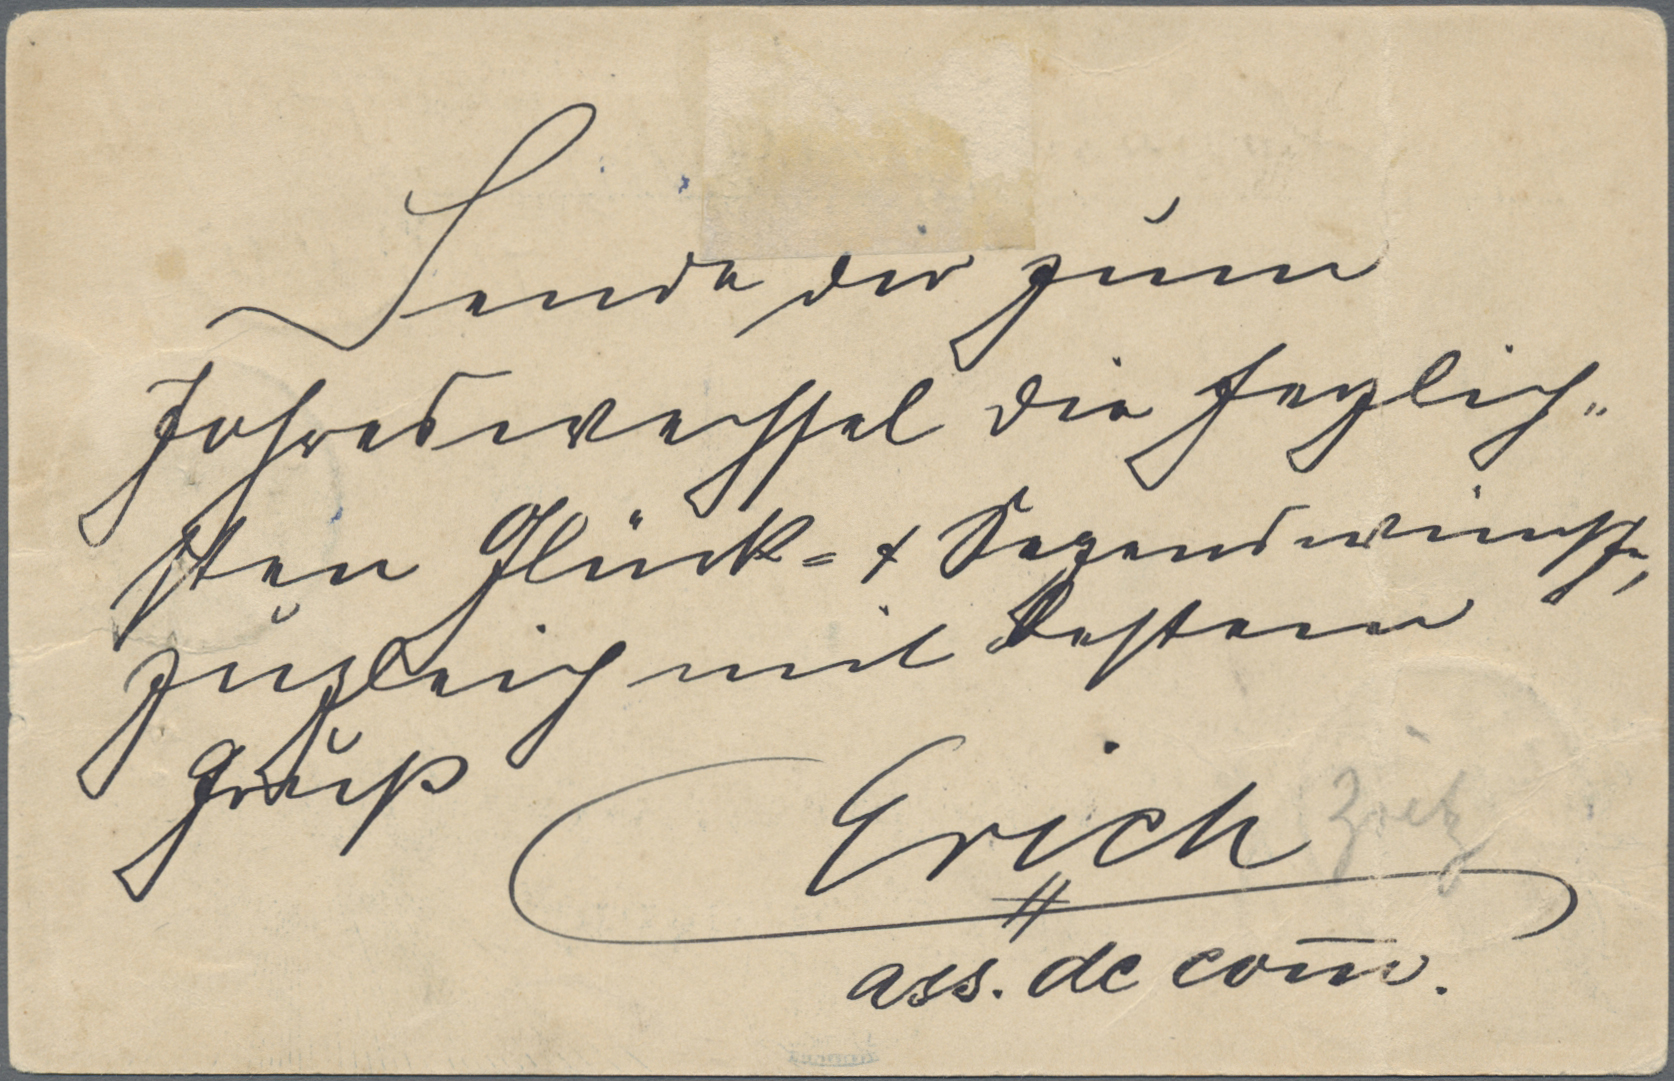 Sende dir zum
Jahreswechsel die herzlich"
sten Glück= & Segenswünsche,
zugleich mit bestem
Gruß
Erich
ass. de com̄.